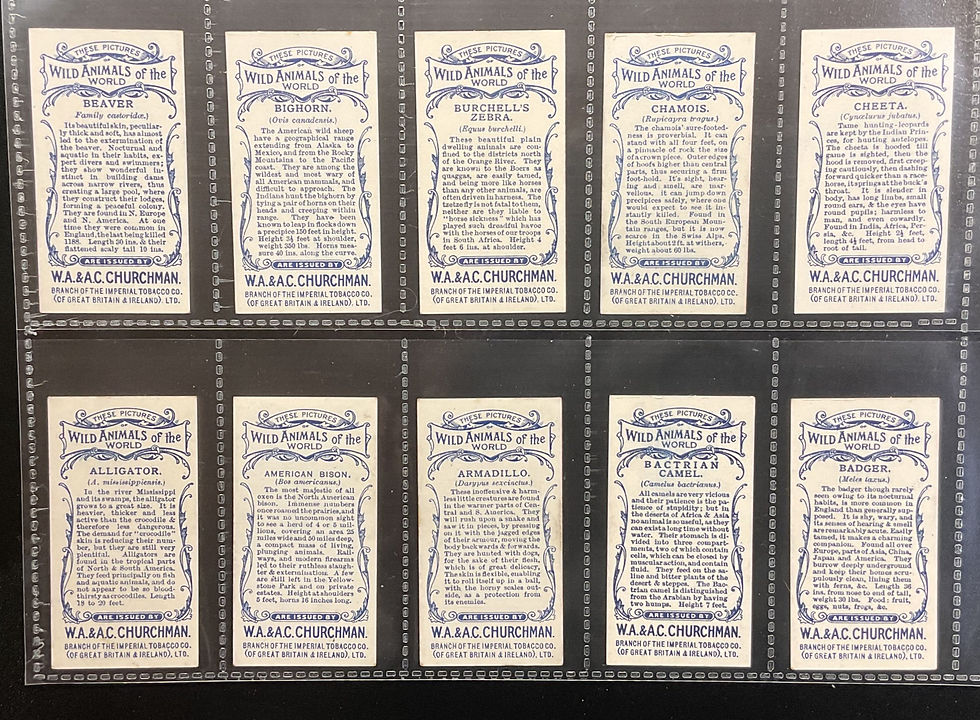 THESE PICTURES
OF
WILD ANIMALS of the
WORLD
BEAVER
Family castoridæ.)
Its beautiful skin, peculiar-
ly thick and soft, has almost
led to the extermination of
the beaver. Nocturnal and
aquatic in their habits, ex-
pert divers and swimmers;
they show wonderful in-
stinct in building dams
across narrow rivers, thus
creating a large pool, where
they construct their lodges,
forming a peaceful colony.
They are found in N. Europe
and N. America. At one
time they were common in
England, the last being killed
1188. Length 30 ins, & their
flattened scaly tail 10 ins.
ARE ISSUED BY
W.A.&A.C. CHURCHMAN.
BRANCH OF THE IMPERIAL TOBACCO CO.
(OF GREAT BRITAIN & IRELAND), LTD.
THESE PICTURES
OF
WILD ANIMALS of the
WORLD
BIGHORN.
(Ovis canadensis.)
The American wild sheep
have a geographical range
extending from Alaska to
Mexico, and from the Rocky
Mountains to the Pacific
coast. They are among the
wildest and most wary of
all American mammals, and
difficult to approach. The
Indians hunt the bighorn by
tying a pair of horns on their
heads and creeping within
range. They have been
known to leap in flocks down
a precipice 150 feet in height.
Height 3½ feet at shoulder,
weight 350 lbs. Horns mea-
sure 40 ins. along the curve.
ARE ISSUED BY
W.A.&A.C. CHURCHMAN.
BRANCH OF THE IMPERIAL TOBACCO CO.
(OF GREAT BRITAIN & IRELAND), LTD.
THESE PICTURES
OF
WILD ANIMALS of the
WORLD
BURCHELL'S
ZEBRA.
(Equus burchelli.)
These beautiful plain
dwelling animals are con-
fined to the districts north
of the Orange River. They
are known to the Boers as
quaggas, are easily tamed,
and being more like horses
than any other animals, are
often driven in harness. The
tsetze fly is not fatal to them,
neither are they liable to
"horse sickness" which has
played such dreadful havoc
with the horses of our troops
in South Africa. Height 4
feet 6 ins. at shoulder.
ARE ISSUED BY
W.A.&A.C. CHURCHMAN.
BRANCH OF THE IMPERIAL TOBACCO CO.
(OF GREAT BRITAIN & IRELAND), LTD.
THESE PICTURES
OF
WILD ANIMALS of the
WORLD
CHAMOIS.
(Rupicapra tragus.)
The chamois' sure-footed-
ness is proverbial. It can
stand with all four feet, on
a pinnacle of rock the size
of a crown piece. Outer edges
of hoofs higher than central
parts, thus securing a firm
foot-hold. It's sight, hear-
ing and smell, are mar-
vellous. it can jump down
precipices safely, where one
would expect to see it in-
stantly killed. Found in
the South European Moun-
tain ranges, but it is now
scarce in the Swiss Alps.
Height about 2 ft. at withers,
weight about 60 lbs.
ARE ISSUED BY
W.A.&A.C. CHURCHMAN.
BRANCH OF THE IMPERIAL TOBACCO CO.
(OF GREAT BRITAIN & IRELAND), LTD.
THESE PICTURES
OF
WILD ANIMALS of the
WORLD
CHEETA.
(Cynœlurus jubatus.)
Tame hunting-leopards
are kept by the Indian Prin-
ces, for hunting antelopes
The cheeta is hooded till
game is sighted, then the
hood is removed, first creep-
ing cautiously, then dashing
forward quicker than a race
horse, it springs at the buck's
throat. It is slender in
body, has long limbs, small
round ears, & the eyes have
round pupils; harmless to
man, and even cowardly.
Found in India, Africa, Per-
sia, &c. Height 2½ ft.
length 4½ feet, from head to
root of tail.
ARE ISSUED BY
W.A.&A.C. CHURCHMAN.
BRANCH OF THE IMPERIAL TOBACCO CO.
(OF GREAT BRITAIN & IRELAND), LTD.
THESE PICTURES
OF
WILD ANIMALS of the
WORLD
ALLIGATOR.
(A. mississippiensis.)
In the river Mississippi
and its swamps, the alligator
grows to a great size. It is
heavier, thicker and less
active than the crocodile &
therefore less dangerous.
The demand for "crocodile"
skin is reducing their num-
ber, but they are still very
plentiful. Alligators are
found in the tropical parts
of North & South America.
They feed principally on fish
and aquatic animals, and do
not appear to be so blood-
thirsty as crocodiles. Length
18 to 20 feet.
ARE ISSUED BY
W.A.&A.C. CHURCHMAN.
BRANCH OF THE IMPERIAL TOBACCO CO.
(OF GREAT BRITAIN & IRELAND), LTD.
THESE PICTURES
OF
WILD ANIMALS of the
WORLD
AMERICAN BISON.
(Bos americanus.)
The most majestic of all
oxen is the North American
bison. Immense numbers
once roamed the prairies, and
it was no uncommon sight
to see a herd of 4 or 5 mil-
lions, covering an area 25
miles wide and 50 miles deep,
a compact mass of living,
plunging animals. Rail-
ways, and modern firearms
led to their ruthless slaugh-
ter & extermination. A few
are still left in the Yellow-
stone Park and on private
estates. Height at shoulders
5 feet, horns 16 inches long.
ARE ISSUED BY
W.A.&A.C. CHURCHMAN.
BRANCH OF THE IMPERIAL TOBACCO CO.
(OF GREAT BRITAIN & IRELAND), LTD.
THESE PICTURES
OF
WILD ANIMALS of the
WORLD
ARMADILLO.
(Dasypus sexcinctus.)
These inoffensive & harm-
less little creatures are found
in the warmer parts of Cen-
tral and S. America. They
will rush upon a snake and
saw it in pieces, by pressing
on it with the jagged edges
of their armour, moving the
body backwards & forwards.
They are hunted with dogs,
for the sake of their flesh,
which is of great delicacy,
The skin is flexible, enabling
it to roll itself up in a ball,
with the horny scales out-
side, as a protection from
its enemies.
ARE ISSUED BY
W.A.&A.C. CHURCHMAN.
BRANCH OF THE IMPERIAL TOBACCO CO.
(OF GREAT BRITAIN & IRELAND), LTD.
THESE PICTURES
OF
WILD ANIMALS of the
WORLD
BACTRIAN
CAMEL.
(Camelus bactrianus.)
All camels are very vicious
and their patience is the pa-
tience of stupidity; but in
the deserts of Africa & Asia
no animal is so useful, as they
can exist a long time without
water. Their stomach is di-
vided into three compart-
ments, two of which contain
cells, which can be closed by
muscular action, and contain
fluid. They feed on the sa-
line and bitter plants of the
desert & steppes. The Bac-
trian camel is distinguished
from the Arabian by having
two humps. Height 7 feet.
ARE ISSUED BY
W.A.&A.C. CHURCHMAN.
BRANCH OF THE IMPERIAL TOBACCO CO.
(OF GREAT BRITAIN & IRELAND), LTD.
THESE PICTURES
OF
WILD ANIMALS of the
WORLD
BADGER.
(Meles taxus.)
The badger though rarely
seen owing to its nocturnal
habits, is more common in
England than generally sup-
posed. It is shy, wary, and
its senses of hearing & smell
are remarkably acute. Easily
tamed, it makes a charming
companion. Found all over
Europe, parts of Asia, China,
Japan and America. They
burrow deeply underground
and keep their homes scru-
pulously clean, lining them
with ferns, &c. Length 36
ins. from nose to end of tail,
weight 30 lbs. Food: fruit,
eggs, nuts, frogs, &c.
ARE ISSUED BY
W.A.&A.C. CHURCHMAN.
BRANCH OF THE IMPERIAL TOBACCO CO.
(OF GREAT BRITAIN & IRELAND), LTD.